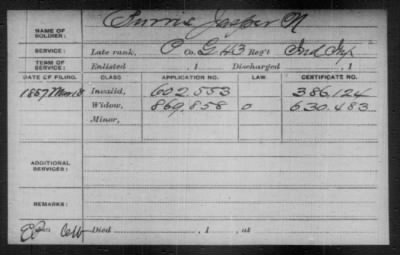 NAME OF SOLDIER: Jasper N
SERVICE: Late rank, Co. G 43 Reg't Ind Inf
TERM OF SERVICE: Enlisted , 1 Discharged , 1
DATE OF FILING. CLASS APPLICATION NO. LAW. CERTIFICATE NO.
1887 Invalid, 602.553 386.124
Widow, 869.858 630.483
Minor,
ADDITIONAL SERVICES:
REMARKS:
Died , 1 , at